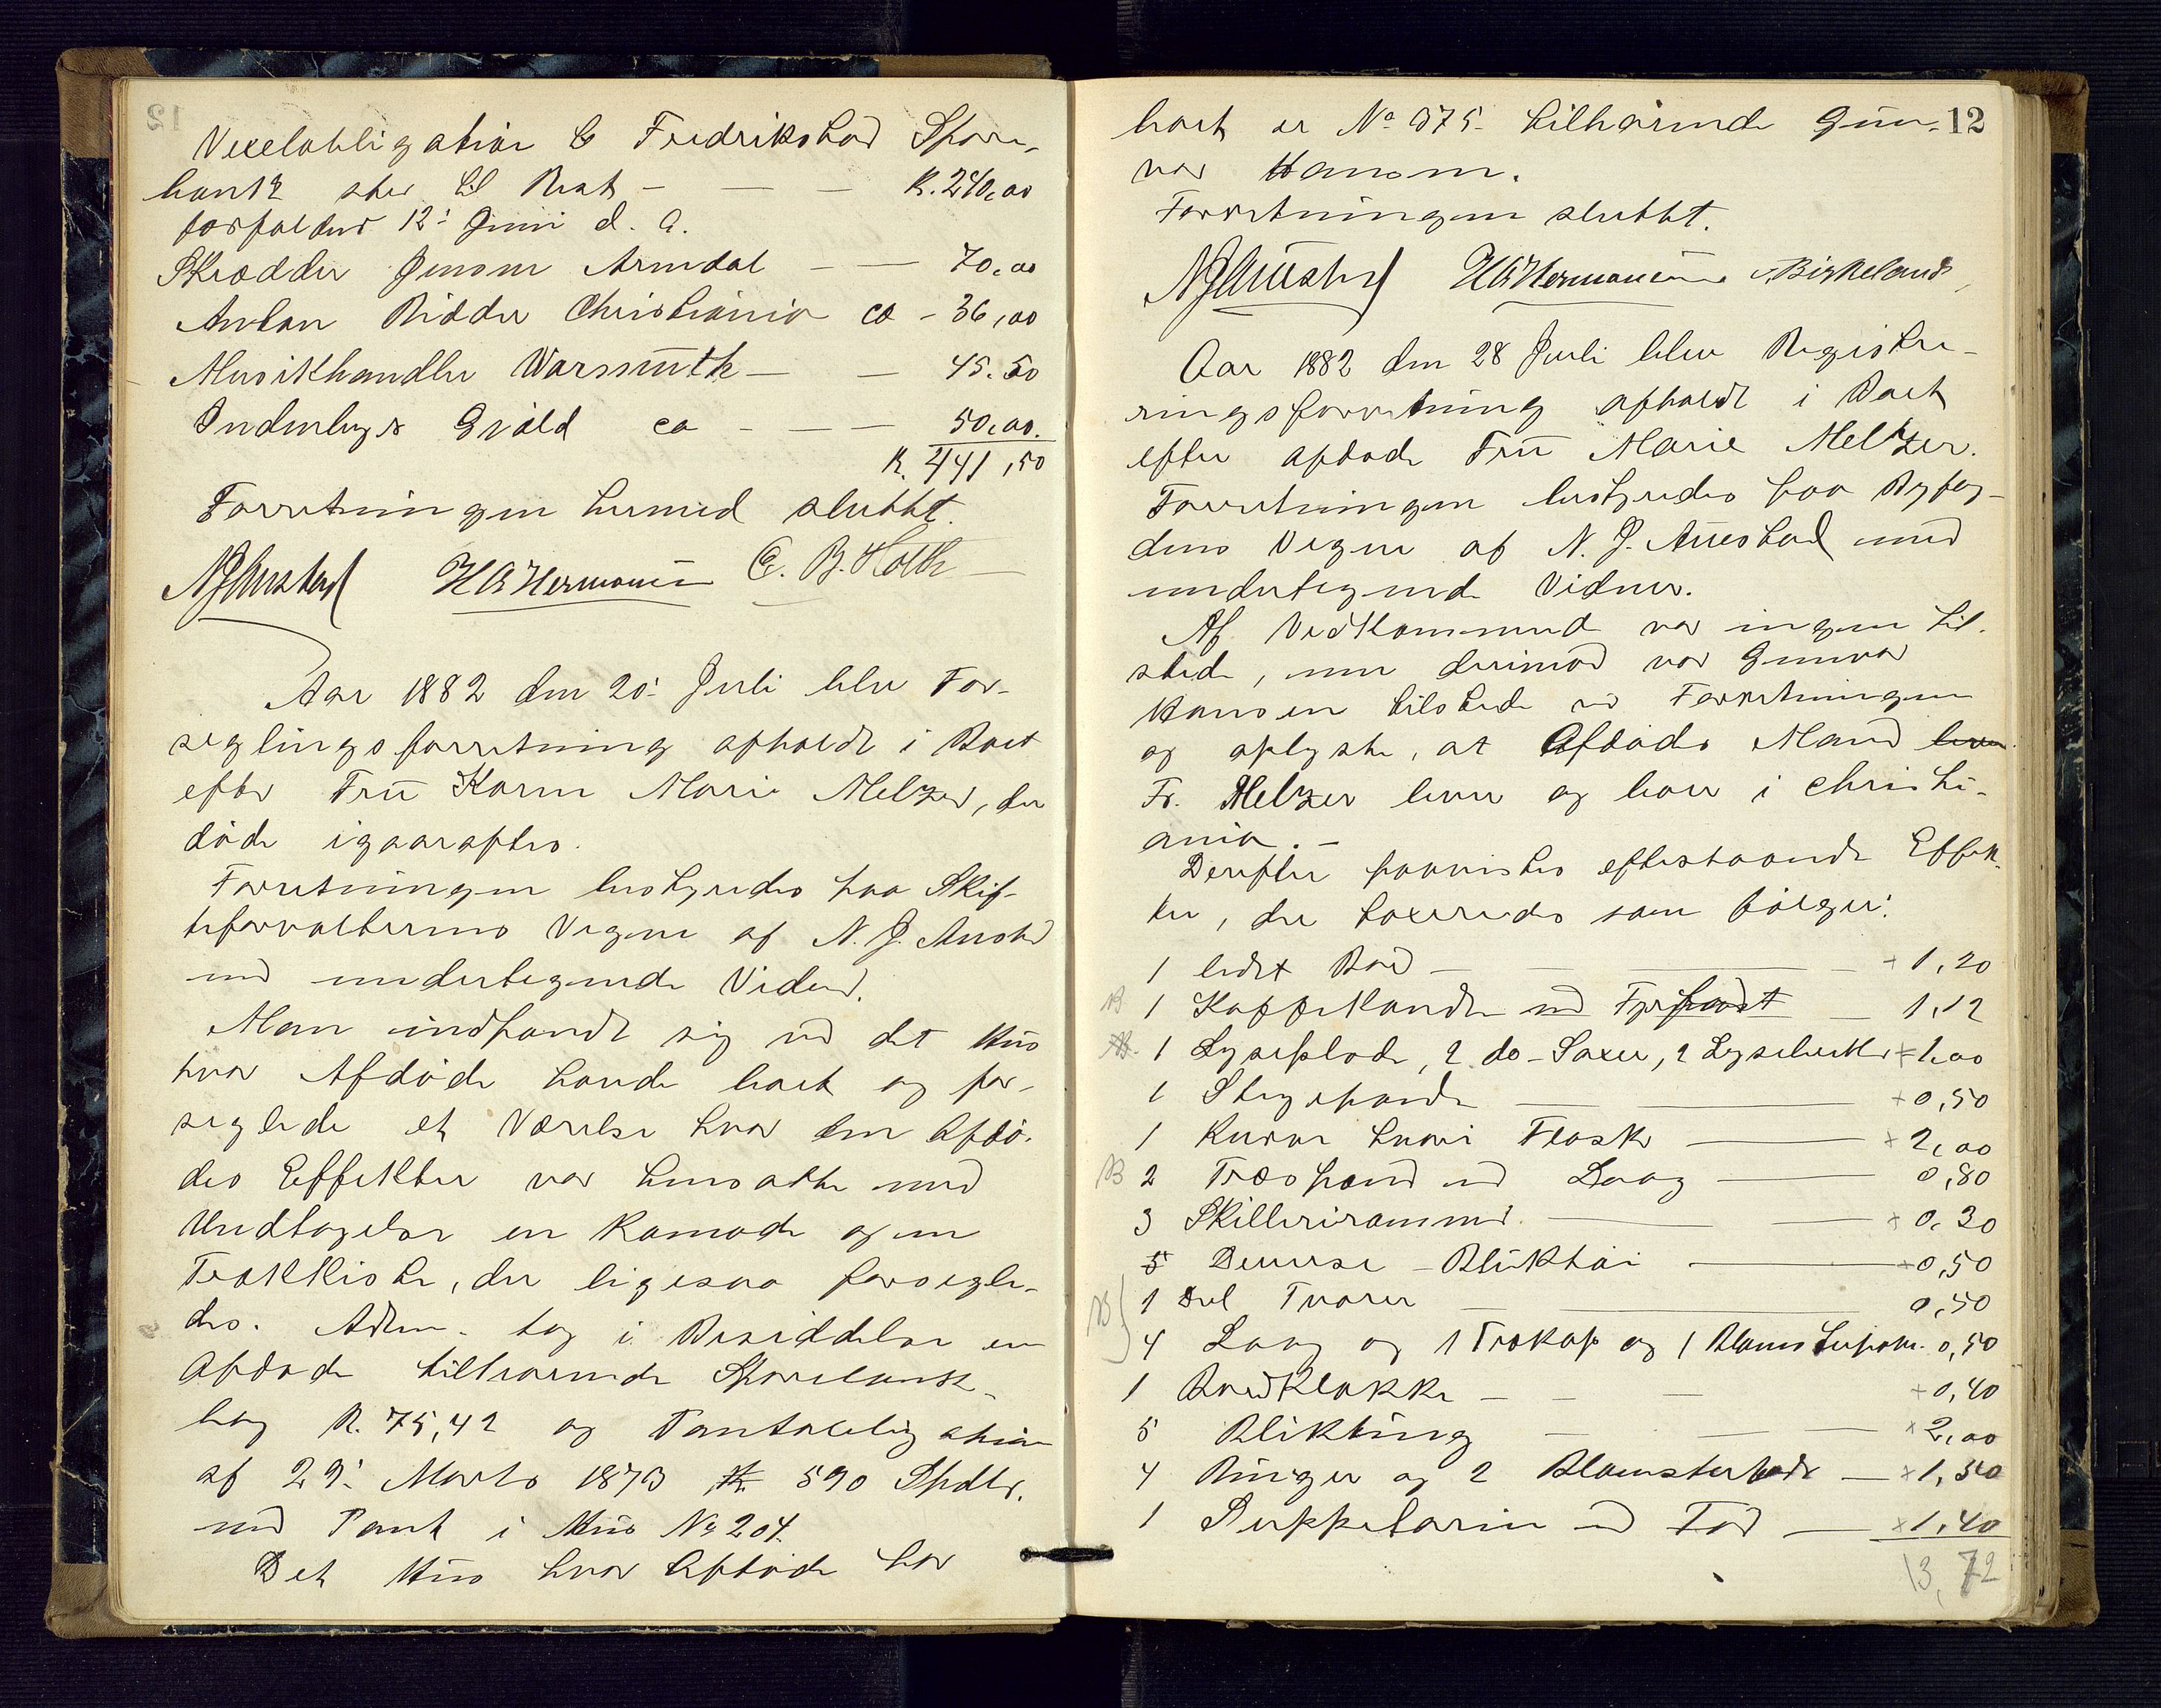 Vexelobligation t Fredrikstad Spare-
bank stor til Rest - — — K. 240,00
forfalden 12' Juni d. A.
Skrædder Jensen Arendal — — 70,00
Anton Ridder Christiania ca - 36,00
Musikhandler Warsmuth — — 45.50
Indenbyes Gjæld ca - — — 50,00.
K. 441,50
Forretningen hermed sluttet.
NJAuestad HAHermansen C. B. Holth
Aar 1882 den 20' Juli blev For-
seglingsforretning afholdt i Boet
efter Frü Karen Marie Meltzer, der
døde igaaraftes.
Forretningen bestyredes paa Skif-
teforvalterens Vegne af N. J. Auestad
med undertegnede Vidner.
Man indfandt sig ved det Hüs
hvor Afdøde havde boet og for-
seglede et Værelse hvor den Afdø-
des Effekter var hensatte med
Undtagelse en Komode og en
Trækkiste, der ligesaa forsegle-
des. Adm. tog i Besiddelse en
Afdøde tilhørende Sparebank-
bog K. 75,42 og Pantobligation
af 29' Marts 1873 st. 590 Spdlr.
med Pant i Hüs No 204.
Det Hüs hvor Afdøde har
12
boet er No 375 tilhørende Gün-
vor Hansen.
Forretningen sluttet.
NJAuestad HAHermansen Birkeland
Aar 1882 den 28 Juli blev Registre-
ringsforretning afholdt i Boet
efter afdøde Frü Marie Meltzer.
Forretningen bestyredes paa Byfog-
dens Vegne af N. J. Auestad med
undertegnede Vidner.
Af Vedkommende var ingen til-
stede, men derimod var Gunvor
Hansen tilstede ved Forretningen
og oplyste, at Afdødes Mand lever
Fr. Meltzer lever og boer i Christi-
ania. -
Derefter paavistes efterstaaende Effek-
ter, der taxeredes som følger:
1 lidet Bord — — — + 1,20
1 Kaffekande med Fyrfadt — 1,12
1 Lyseplade, 2 do-Saxer, 2 Lysestker + 1,00
1 Stegepande — — + 0,50
1 Kurve hvori Flasker — + 2,00
B 2 Træspand med Laag — 0,80
3 Skillerirammer — — + 0,30
5 Diverse Bliktøi — + 0,50
1 Deel Tvarer — — 0,50
4 Laag og 1 Trækop og 1 Blomsterpotte 0,50
1 Bordklokke — — — + 0,40
5 Bliktüng — — — + 2,00
4 Ringer og 2 Blomsterbord — + 1,50
1 Suppeterin med Fad — + 1,40
13,72